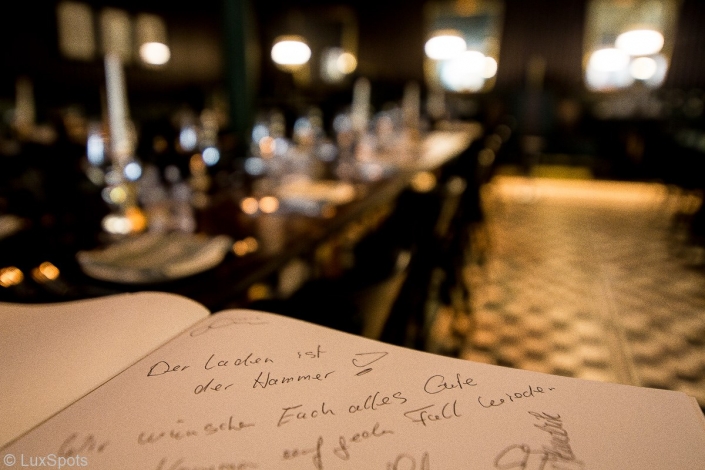 Der Laden ist
der Hammer
Wir wünschen Euch alles Gute
Kommen auf jeden Fall wieder
© LuxSpots